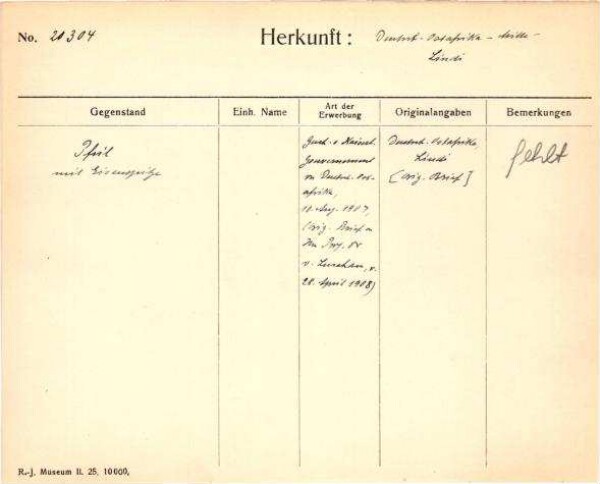 No. 20304
Herkunft: Deutsch-Ostafrika -
Lindi
Gegenstand
Einh. Name
Art der
Erwerbung
Originalangaben
Bemerkungen
Pfeil
mit Eisenspitze
Gesch. v. Kaiserl.
Gouvernement
von Deutsch-Ost-
afrika,
11. Aug. 1907,
(orig. Brief
Prof. Dr
v. Luschan, v.
28. April 1908)
Deutsch-Ostafrika,
Lindi
[Orig. Brief]
fehlt
R.-J. Museum II. 25. 10000.